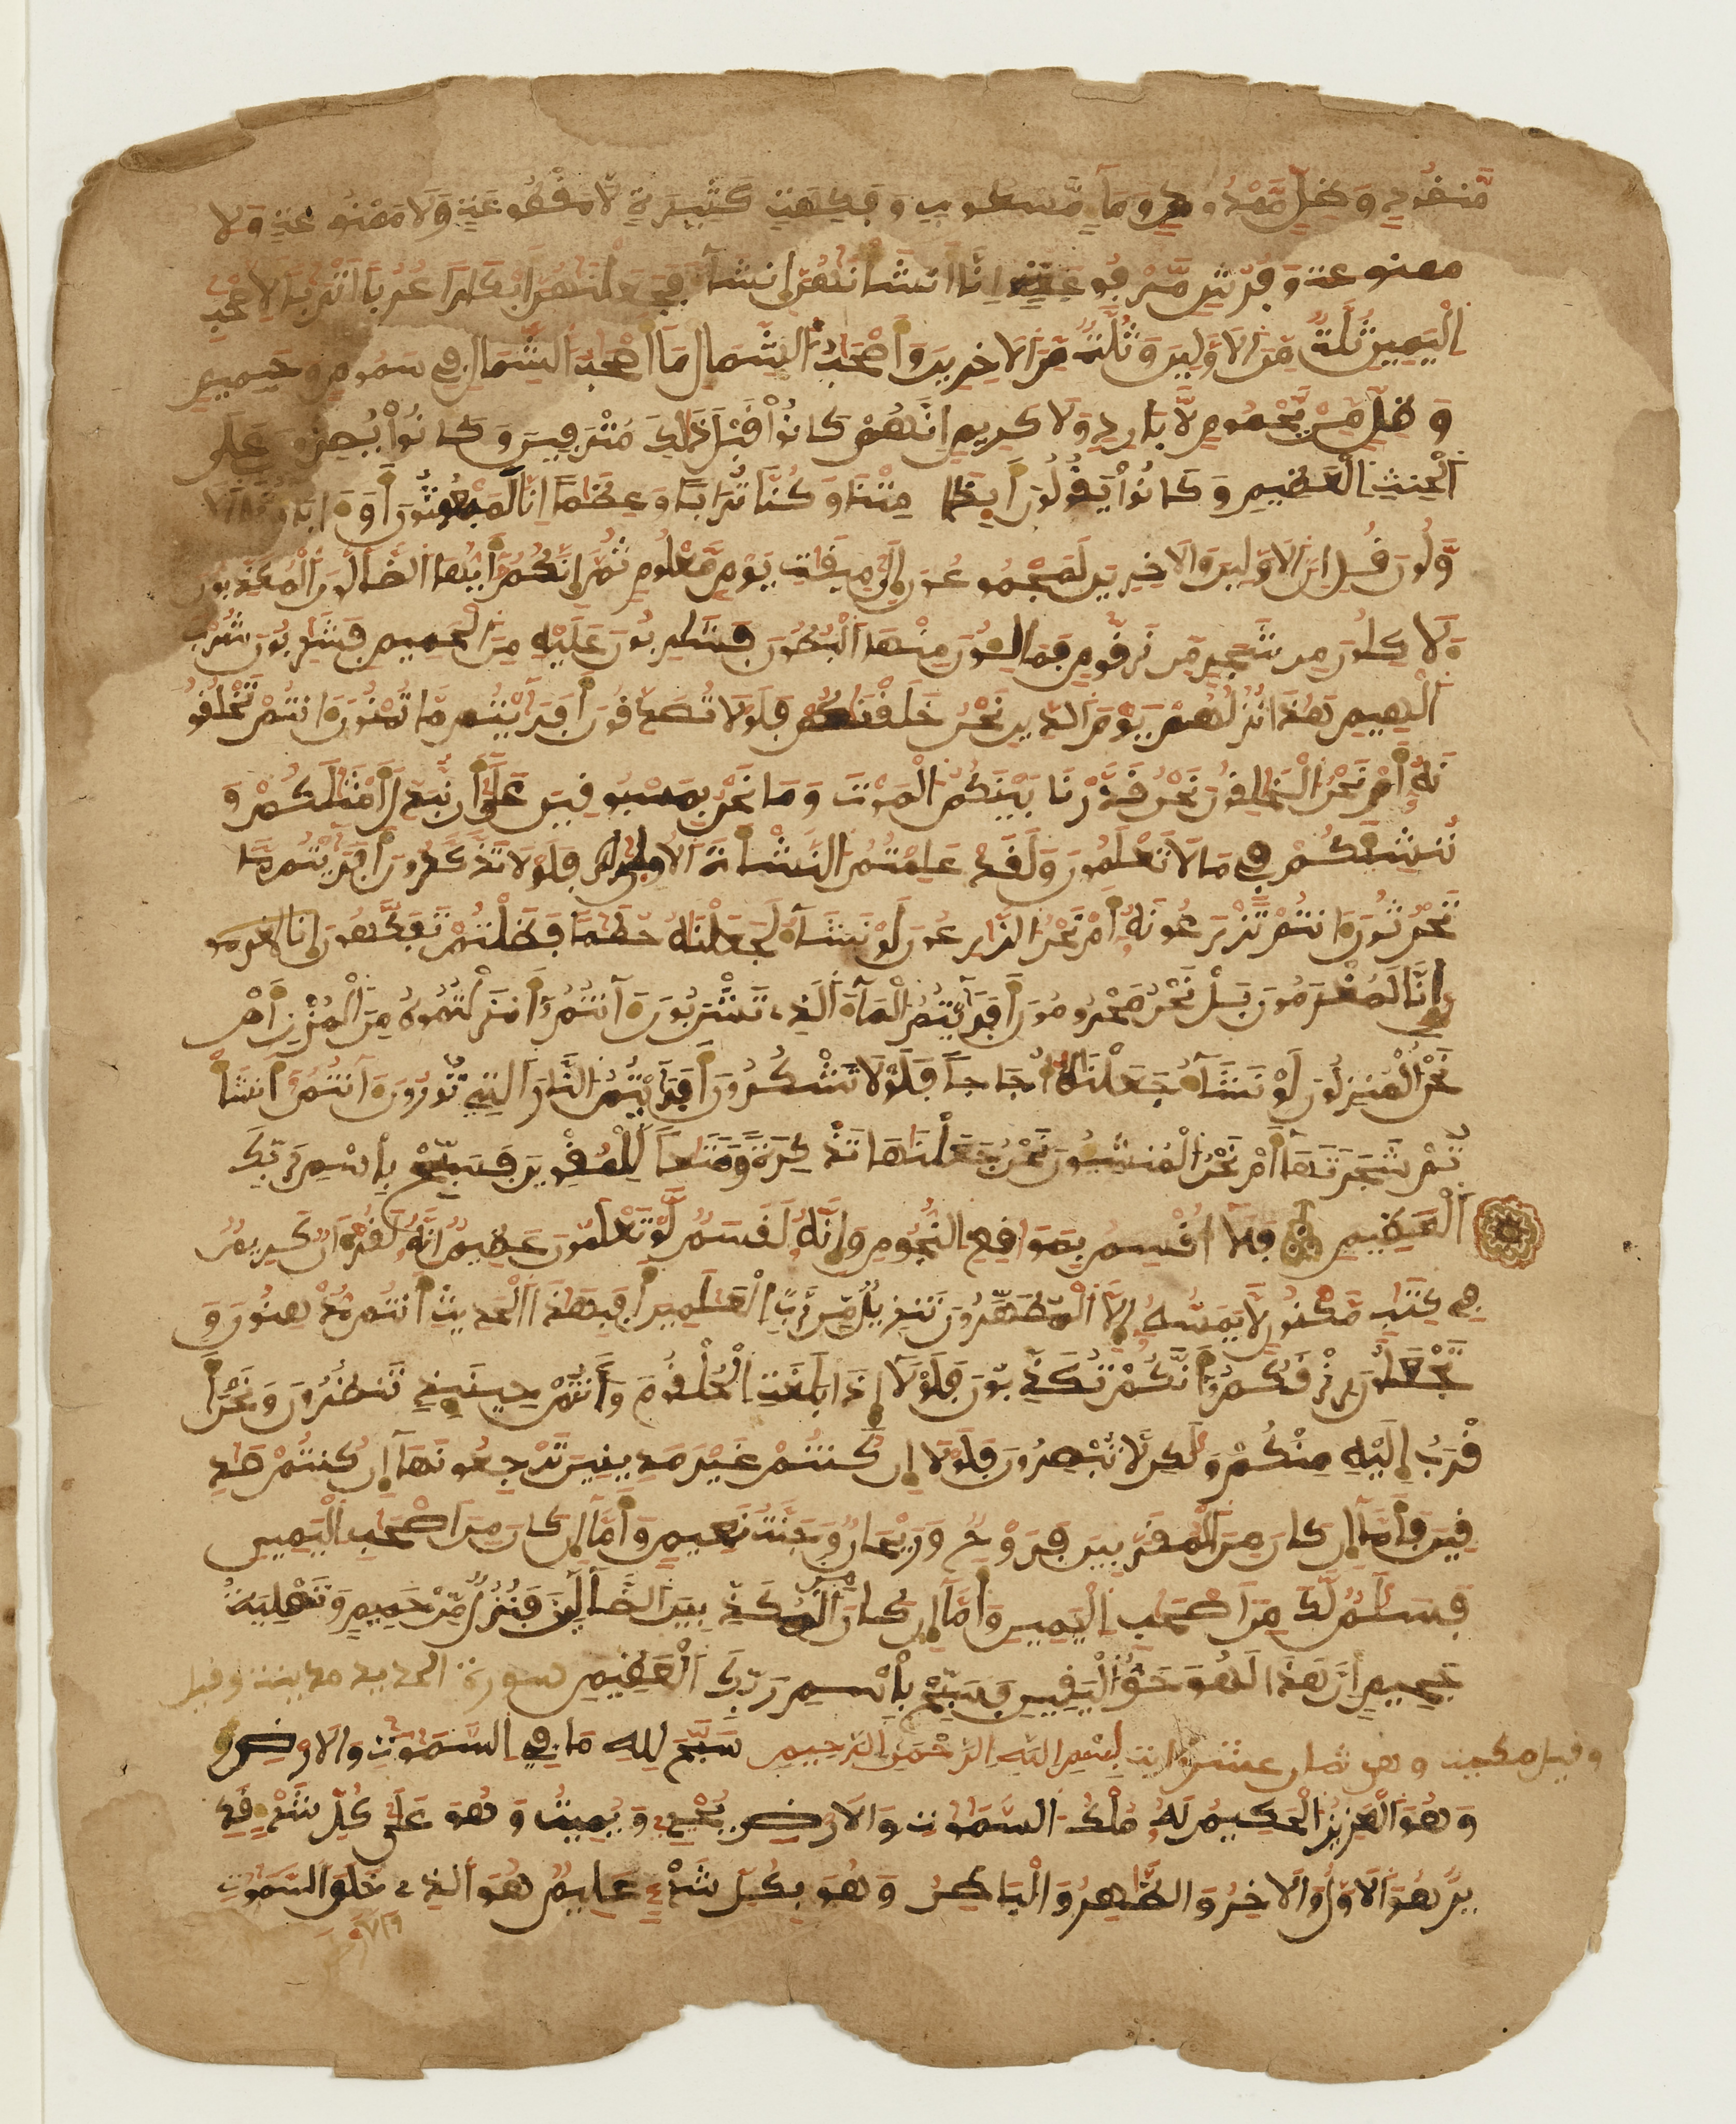 مَّنضُودٍ وَظِلٍّ مَّمْدُودٍ وَمَآءٍ مَّسْكُوبٍ وَفَٰكِهَةٍ كَثِيرَةٍ لَّا مَقْطُوعَةٍ وَلَا مَمْنُوعَةٍ وَلَا
ممنوعة وَفُرُشٍ مَّرْفُوعَةٍ اِنَّا أَنشَأْنَٰهُنَّ إِنشَآءً فَجَعَلْنَٰهُنَّ أَبْكَارًا عُرُبًا اَتْرَابًا لِأَصْحَٰبِ
اِلْيَمِينِ ثُلَّةٌ مِّنَ اَلَاوَّلِينَ وَثُلَّةٌ مِّنَ اَلَاخِرِينَ وَأَصْحَٰبُ اُلشِّمَالِ مَا أَصْحَٰبُ اُلشِّمَالِ فِي سَمُومٍ وَحَمِيمٍ
وَظِلٍّ مِّنْ يَّحْمُومٍ لَّا بَارِدٍ وَلَا كَرِيمٍ اِنَّهُمْ كَانُواْ قَبْلَ ذَٰلِكَ مُتْرَفِينَ وَكَانُواْ يُصِرُّونَ عَلَى
اَلْحِنثِ اِلْعَظِيمِ وَكَانُواْ يَقُولُونَ أَيِذَا مِتْنَا وَكُنَّا تُرَابًا وَعِظَٰمًا اِنَّا لَمَبْعُوثُونَ أَوَءَابَآؤُنَا اَلَا
وَّلُونَ قُلِ اِنَّ اَلَاوَّلِينَ وَالَاخِرِينَ لَمَجْمُوعُونَ إِلَىٰ مِيقَٰتِ يَوْمٍ مَّعْلُومٍ ثُمَّ إِنَّكُمُ أَيُّهَا اَلضَّآلُّونَ اَلْمُكَذِّبُونَ
ءَلَاكِلُونَ مِن شَجَرٍ مِّن زَقُّومٍ فَمَالِـُٔونَ مِنْهَا اَلْبُطُونَ فَشَٰرِبُونَ عَلَيْهِ مِنَ اَلْحَمِيمِ فَشَٰرِبُونَ شُرْبَ
اَلْهِيمِ هَٰذَا نُزُلُهُمْ يَوْمَ اَلدِّينِ نَحْنُ خَلَقْنَٰكُمْ فَلَوْلَا تُصَدِّقُونَ أَفَرَءَيْتُم مَّا تُمْنُونَ ءَانتُمْ تَخْلُقُو
نَهُ أَمْ نَحْنُ اُلْخَٰلِقُونَ نَحْنُ قَدَّرْنَا بَيْنَكُمُ اُلْمَوْتَ وَمَا نَحْنُ بِمَسْبُوقِينَ عَلَىٰ أَن نُّبَدِّلَ أَمْثَٰلَكُمْ وَ
نُنشِئَكُمْ فِي مَا لَا تَعْلَمُونَ وَلَقَدْ عَلِمْتُمُ اُلنَّشْأَةَ اَلُاولَىٰ فَلَوْلَا تَذَّكَّرُونَ أَفَرَءَيْتُم مَّا
تَحْرُثُونَ ءَانتُمْ تَزْرَعُونَهُ أَمْ نَحْنُ اُلزَّٰرِعُونَ لَوْ نَشَآءُ لَجَعَلْنَٰهُ حُطَٰمًا فَظَلْتُمْ تَفَكَّهُونَ إنا لمغرمو
إِنَّا لَمُغْرَمُونَ بَلْ نَحْنُ مَحْرُومُونَ أَفَرَءَيْتُمُ اُلْمَآءَ اَلَّذِي تَشْرَبُونَ ءَآنتُمُ أَنزَلْتُمُوهُ مِنَ اَلْمُزْنِ أَمْ
نَحْنُ اُلْمُنزِلُونَ لَوْ نَشَآءُ جَعَلْنَٰهُ أُجَاجًا فَلَوْلَا تَشْكُرُونَ أَفَرَءَيْتُمُ اُلنَّارَ اَلَّتِي تُورُونَ ءَآنتُمُ أَنشَأْ
تُمْ شَجَرَتَهَا أَمْ نَحْنُ اُلْمُنشِـُٔونَ نَحْنُ جَعَلْنَٰهَا تَذْكِرَةً وَمَتَٰعًا لِّلْمُقْوِينَ فَسَبِّحْ بِاسْمِ رَبِّكَ
اَلْعَظِيمِ فَلَا أُقْسِمُ بِمَوَٰقِعِ اِلنُّجُومِ وَإِنَّهُ لَقَسَمٌ لَّوْ تَعْلَمُونَ عَظِيمٌ اِنَّهُ لَقُرْءَانٌ كَرِيمٌ
فِي كِتَٰبٍ مَّكْنُونٍ لَّا يَمَسُّهُ إِلَّا اَلْمُطَهَّرُونَ تَنزِيلٌ مِّن رَّبِّ اِلْعَٰلَمِينَ أَفَبِهَٰذَا اَلْحَدِيثِ أَنتُم مُّدْهِنُونَ وَ
تَجْعَلُونَ رِزْقَكُمُ أَنَّكُمْ تُكَذِّبُونَ فَلَوْلَا إِذَا بَلَغَتِ اِلْحُلْقُومَ وَأَنتُمْ حِينَئِذٍ تَنظُرُونَ وَنَحْنُ أَ
قْرَبُ إِلَيْهِ مِنكُمْ وَلَٰكِن لَّا تُبْصِرُونَ فَلَوْلَا إِن كُنتُمْ غَيْرَ مَدِينِينَ تَرْجِعُونَهَا إِن كُنتُمْ صَٰدِ
قِينَ فَأَمَّا إِن كَانَ مِنَ اَلْمُقَرَّبِينَ فَرَوْحٌ وَرَيْحَانٌ وَجَنَّتُ نَعِيمٍ وَأَمَّا إِن كَانَ مِنَ اَصْحَٰبِ اِلْيَمِينِ
فَسَلَٰمٌ لَّكَ مِنَ اَصْحَٰبِ اِلْيَمِينِ وَأَمَّا إِن كَانَ مِنَ اَلْمُكَذِّبِينَ اَلضَّآلِّينَ فَنُزُلٌ مِّنْ حَمِيمٍ وَتَصْلِيَةُ
جَحِيمٍ اِنَّ هَٰذَا لَهُوَ حَقُّ اُلْيَقِينِ فَسَبِّحْ بِاسْمِ رَبِّكَ اَلْعَظِيمِ سورة الحديد مدينة وقيل
وقيل مكية وهي ثمان عشرون اية بِسْمِ اِللَّهِ اِلرَّحْمَٰنِ اِلرَّحِيمِ سَبَّحَ لِلهِ مَا فِي اِلسَّمَٰوَٰتِ وَالَارْضِ
وَهُوَ اَلْعَزِيزُ اُلْحَكِيمُ لَهُ مُلْكُ اُلسَّمَٰوَٰتِ وَالَارْضِ يُحْيِي وَيُمِيتُ وَهُوَ عَلَىٰ كُلِّ شَيْءٍ قَدِ
يرٌ هُوَ اَلَاوَّلُ وَالَاخِرُ وَالظَّٰهِرُ وَالْبَاطِنُ وَهُوَ بِكُلِّ شَيْءٍ عَلِيمٌ هُوَ اَلَّذِي خَلَقَ اَلسَّمَٰوَٰتِ